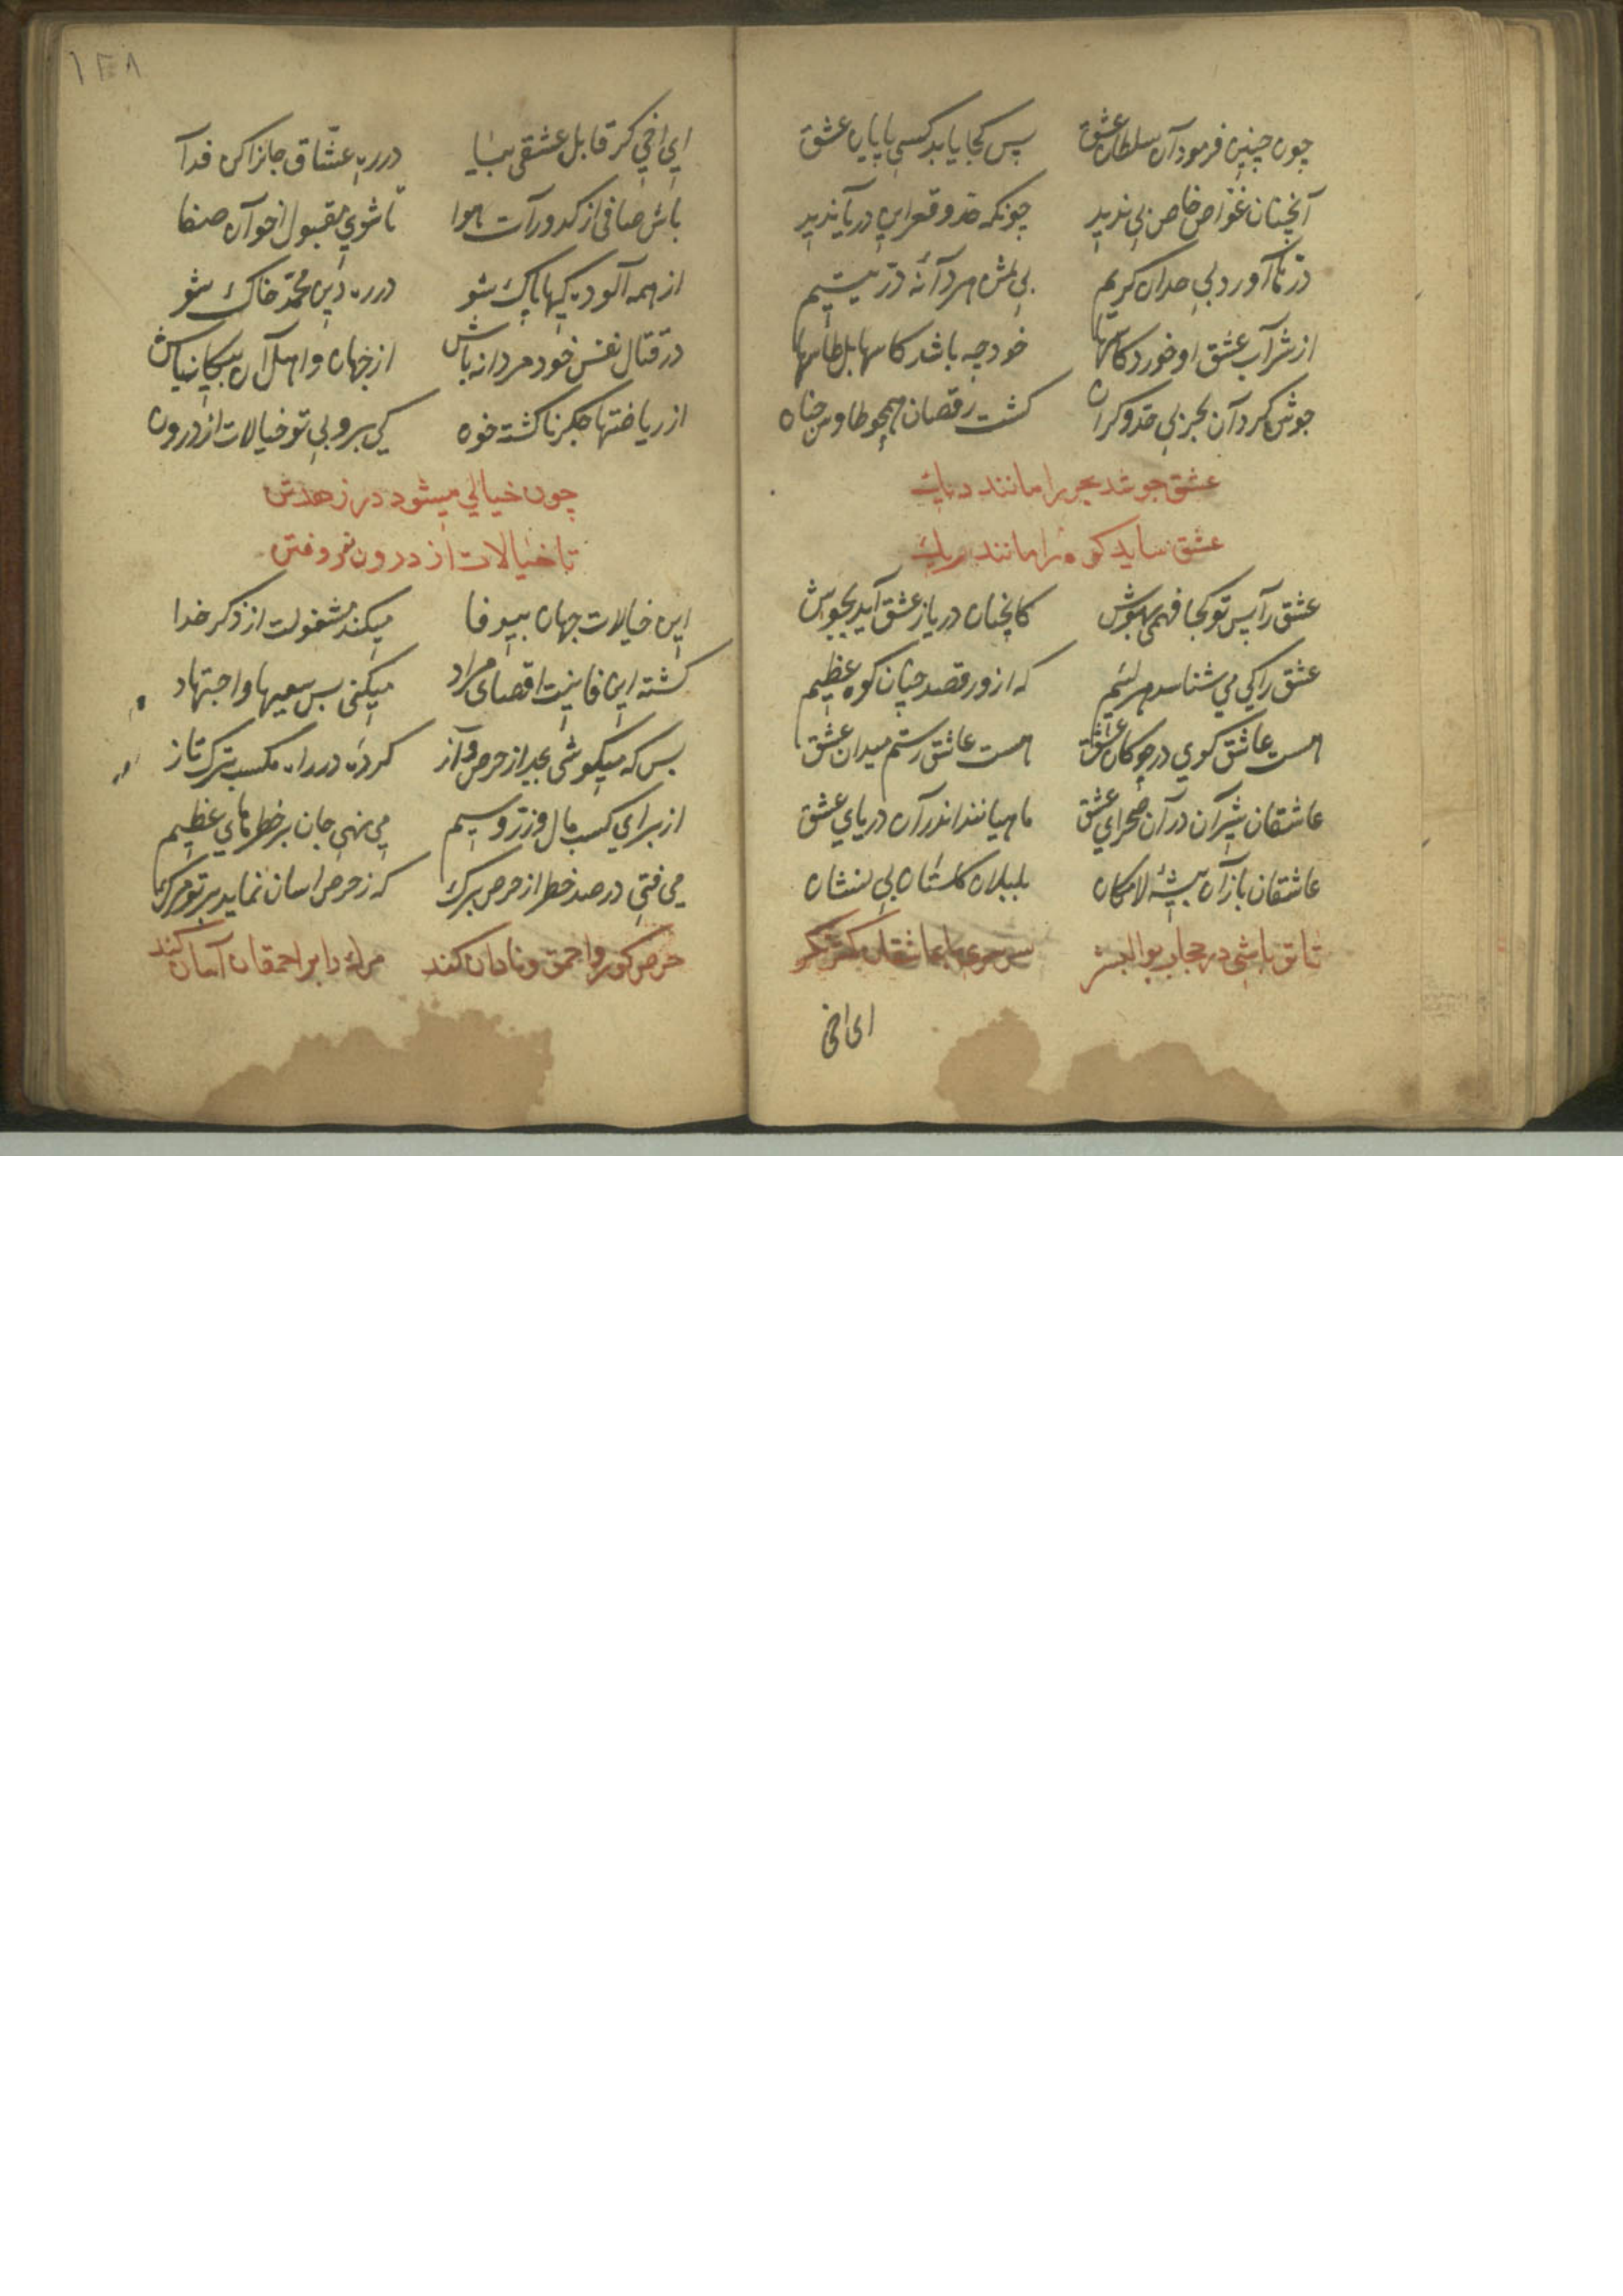 چون چنین فرمود آن سلطان عشق پس کجا یابد کسی پایان عشق
آنچنان غواص خاص بی ندید چونکه حد و قعر این دریا ندید
در نا آورد بی حد آن کریم بی مثل هر دانه در یتیم
از شراب عشق او خورد کاسها خود چه باشد کاسها بل طاسها
جوش کرد آن بحر بی حد و کران کشت رقصان همچو طاوس جنان
عشق جوشد بحر را مانند دیك
عشق ساید کوه را مانند ریك
عشق را پس تو کجا فهمی بهوش کانچنان دریا ز عشق آید بجوش
عشق را کی می شناسد هر لئیم که ازو رقصد چنان کوه عظیم
هست عاشق کوی در چوکان عشق هست عاشق رستم میدان عشق
عاشقان شیران در آن صحرای عشق ماهیانند اندر آن دریای عشق
عاشقان بازان بیشهٔ لامکان بلبلان کلستان بی نشان
تا تو باشی در حجاب بوالبشر سرسری با عاشقان کمتر نکر
ای اخی
۱۴۸
ای اخی کر قابل عشقی بیا در ره عشاق جانرا کن فدا
باش صافی از کدورات هوا تا شوی مقبول اخوان صفا
از همه آلوده کیها پاك شو در ره دین محمد خاك شو
در قتال نفس خود مردانه باش از جهان و اهل آن بیکانه باش
از ریاضتها جکر ناکشته خون کی برو بی تو خیالات از درون
چون خیالی میشود در زهد تن
تا خیالات از درون نمی روفتن
این خیالات جهان بیوفا میکند مشغولت از ذکر خدا
کشته این فانیت اقصای مراد میکنی بس سعیها و اجتهاد
بس که میکوشی بجد از حرص و آز کرده در راه مکسب ترك تاز
از برای کسب مال و زر و سیم می نهی جان بر خطرهای عظیم
می فتی در صد خطر از حرص برك که ز حرص اسان نماید بر تو مرك
حرص کور و احمق و نادان کند مرك را بر احمقان آسان کند